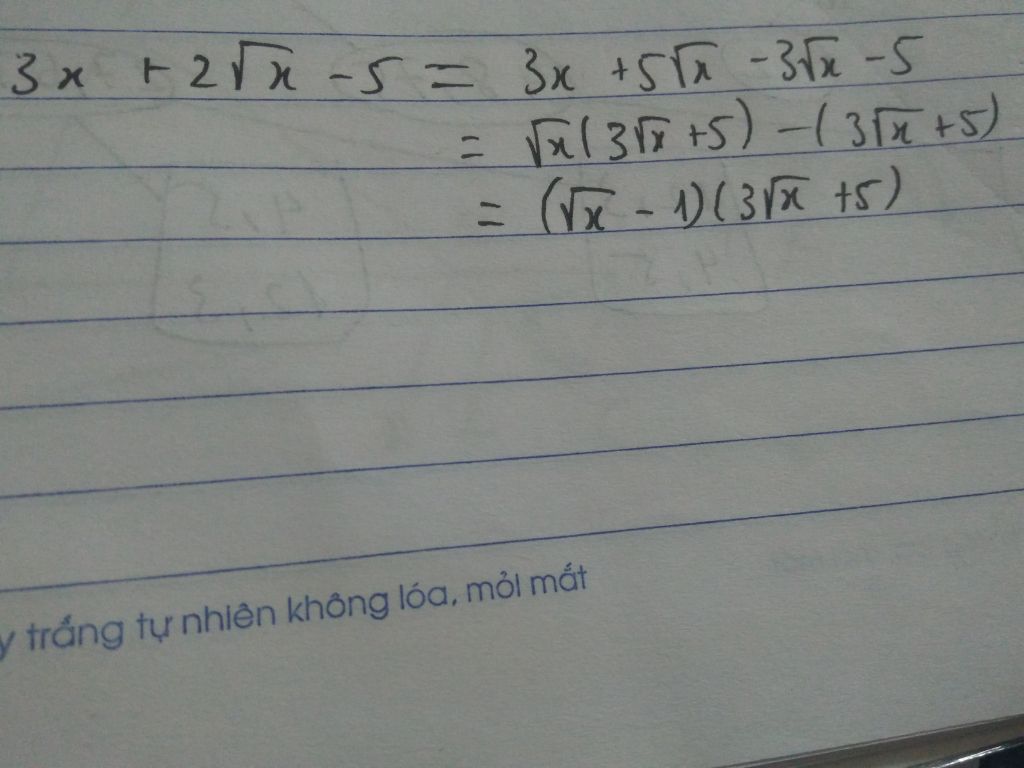 3x + 2√x - 5 = 3x + 5√x - 3√x - 5
= √x(3√x + 5) - (3√x + 5)
= (√x - 1)(3√x + 5)
y trắng tự nhiên không lóa, mỏi mắt